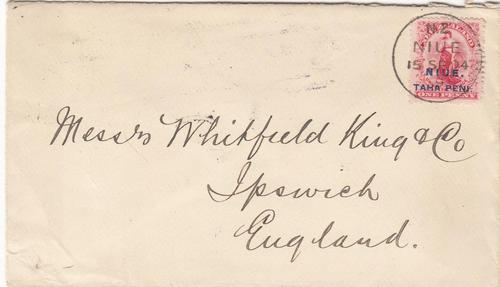 NZ
NIUE
15 SP 04
NIUE.
TAHA PENI.
ONE PENNY
Messrs Whitfield King & Co
Ipswich
England.